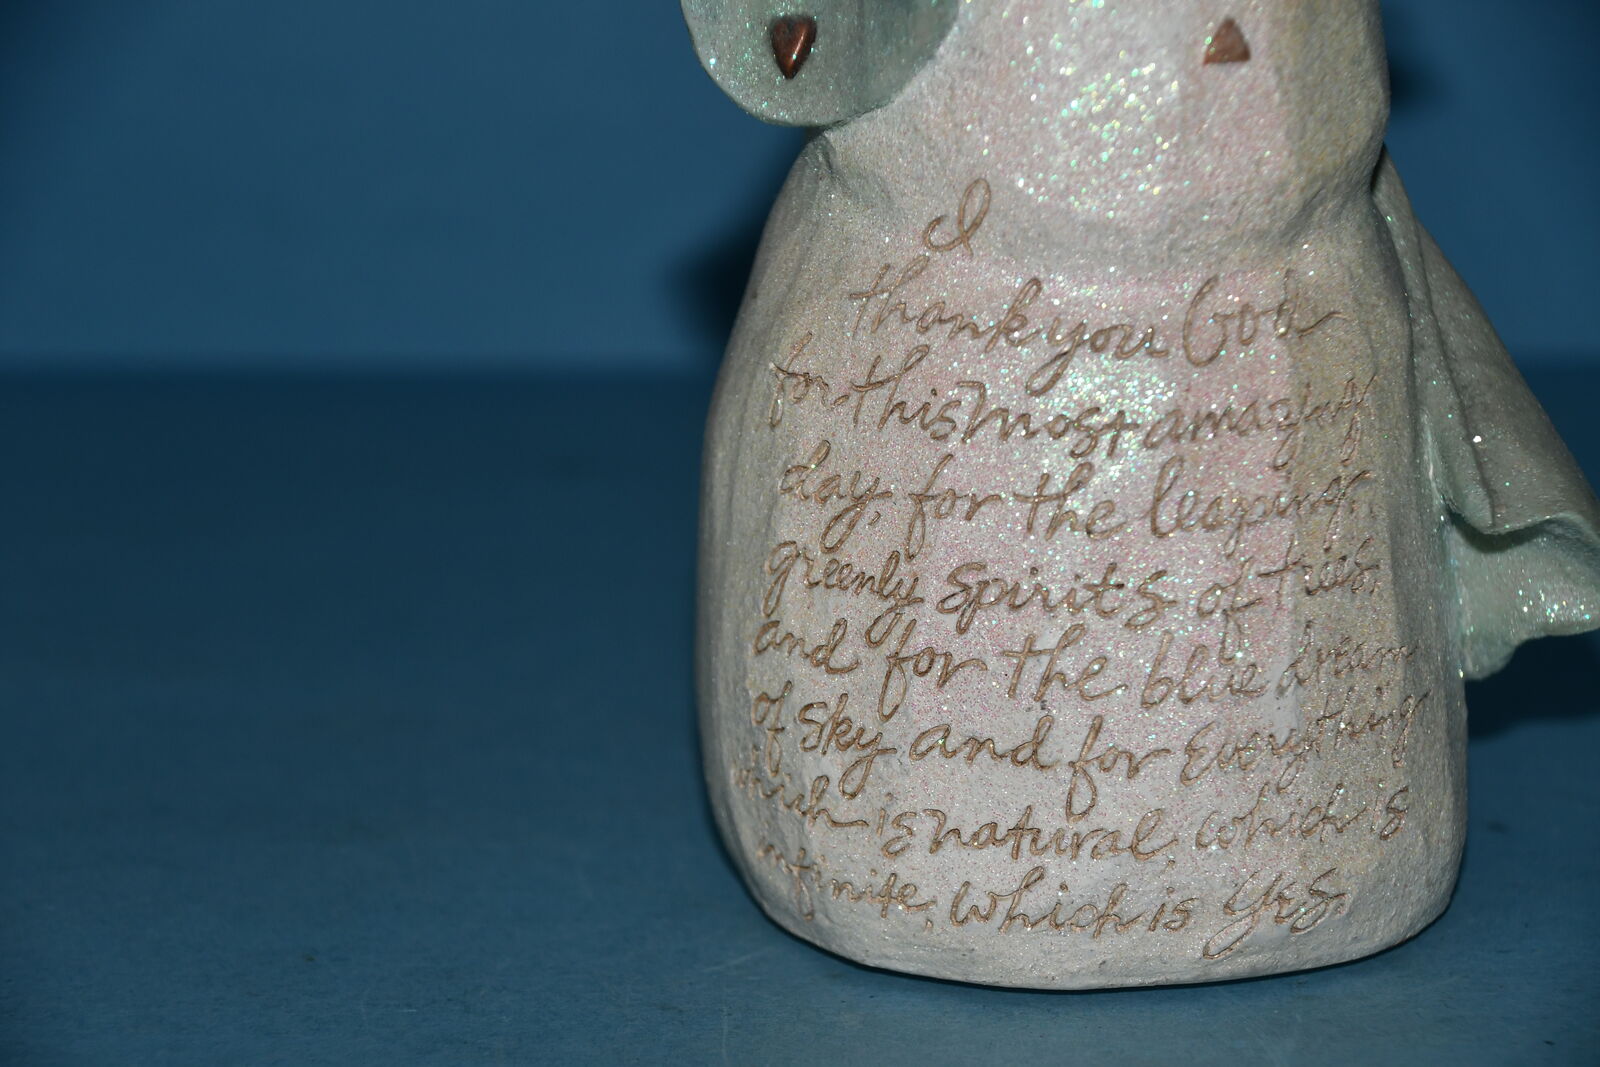 I
thank you God
for this most amazing
day, for the leaping
greenly spirits of trees,
and for the blue dream
of sky and for everything
which is natural, which is
infinite, which is yes.